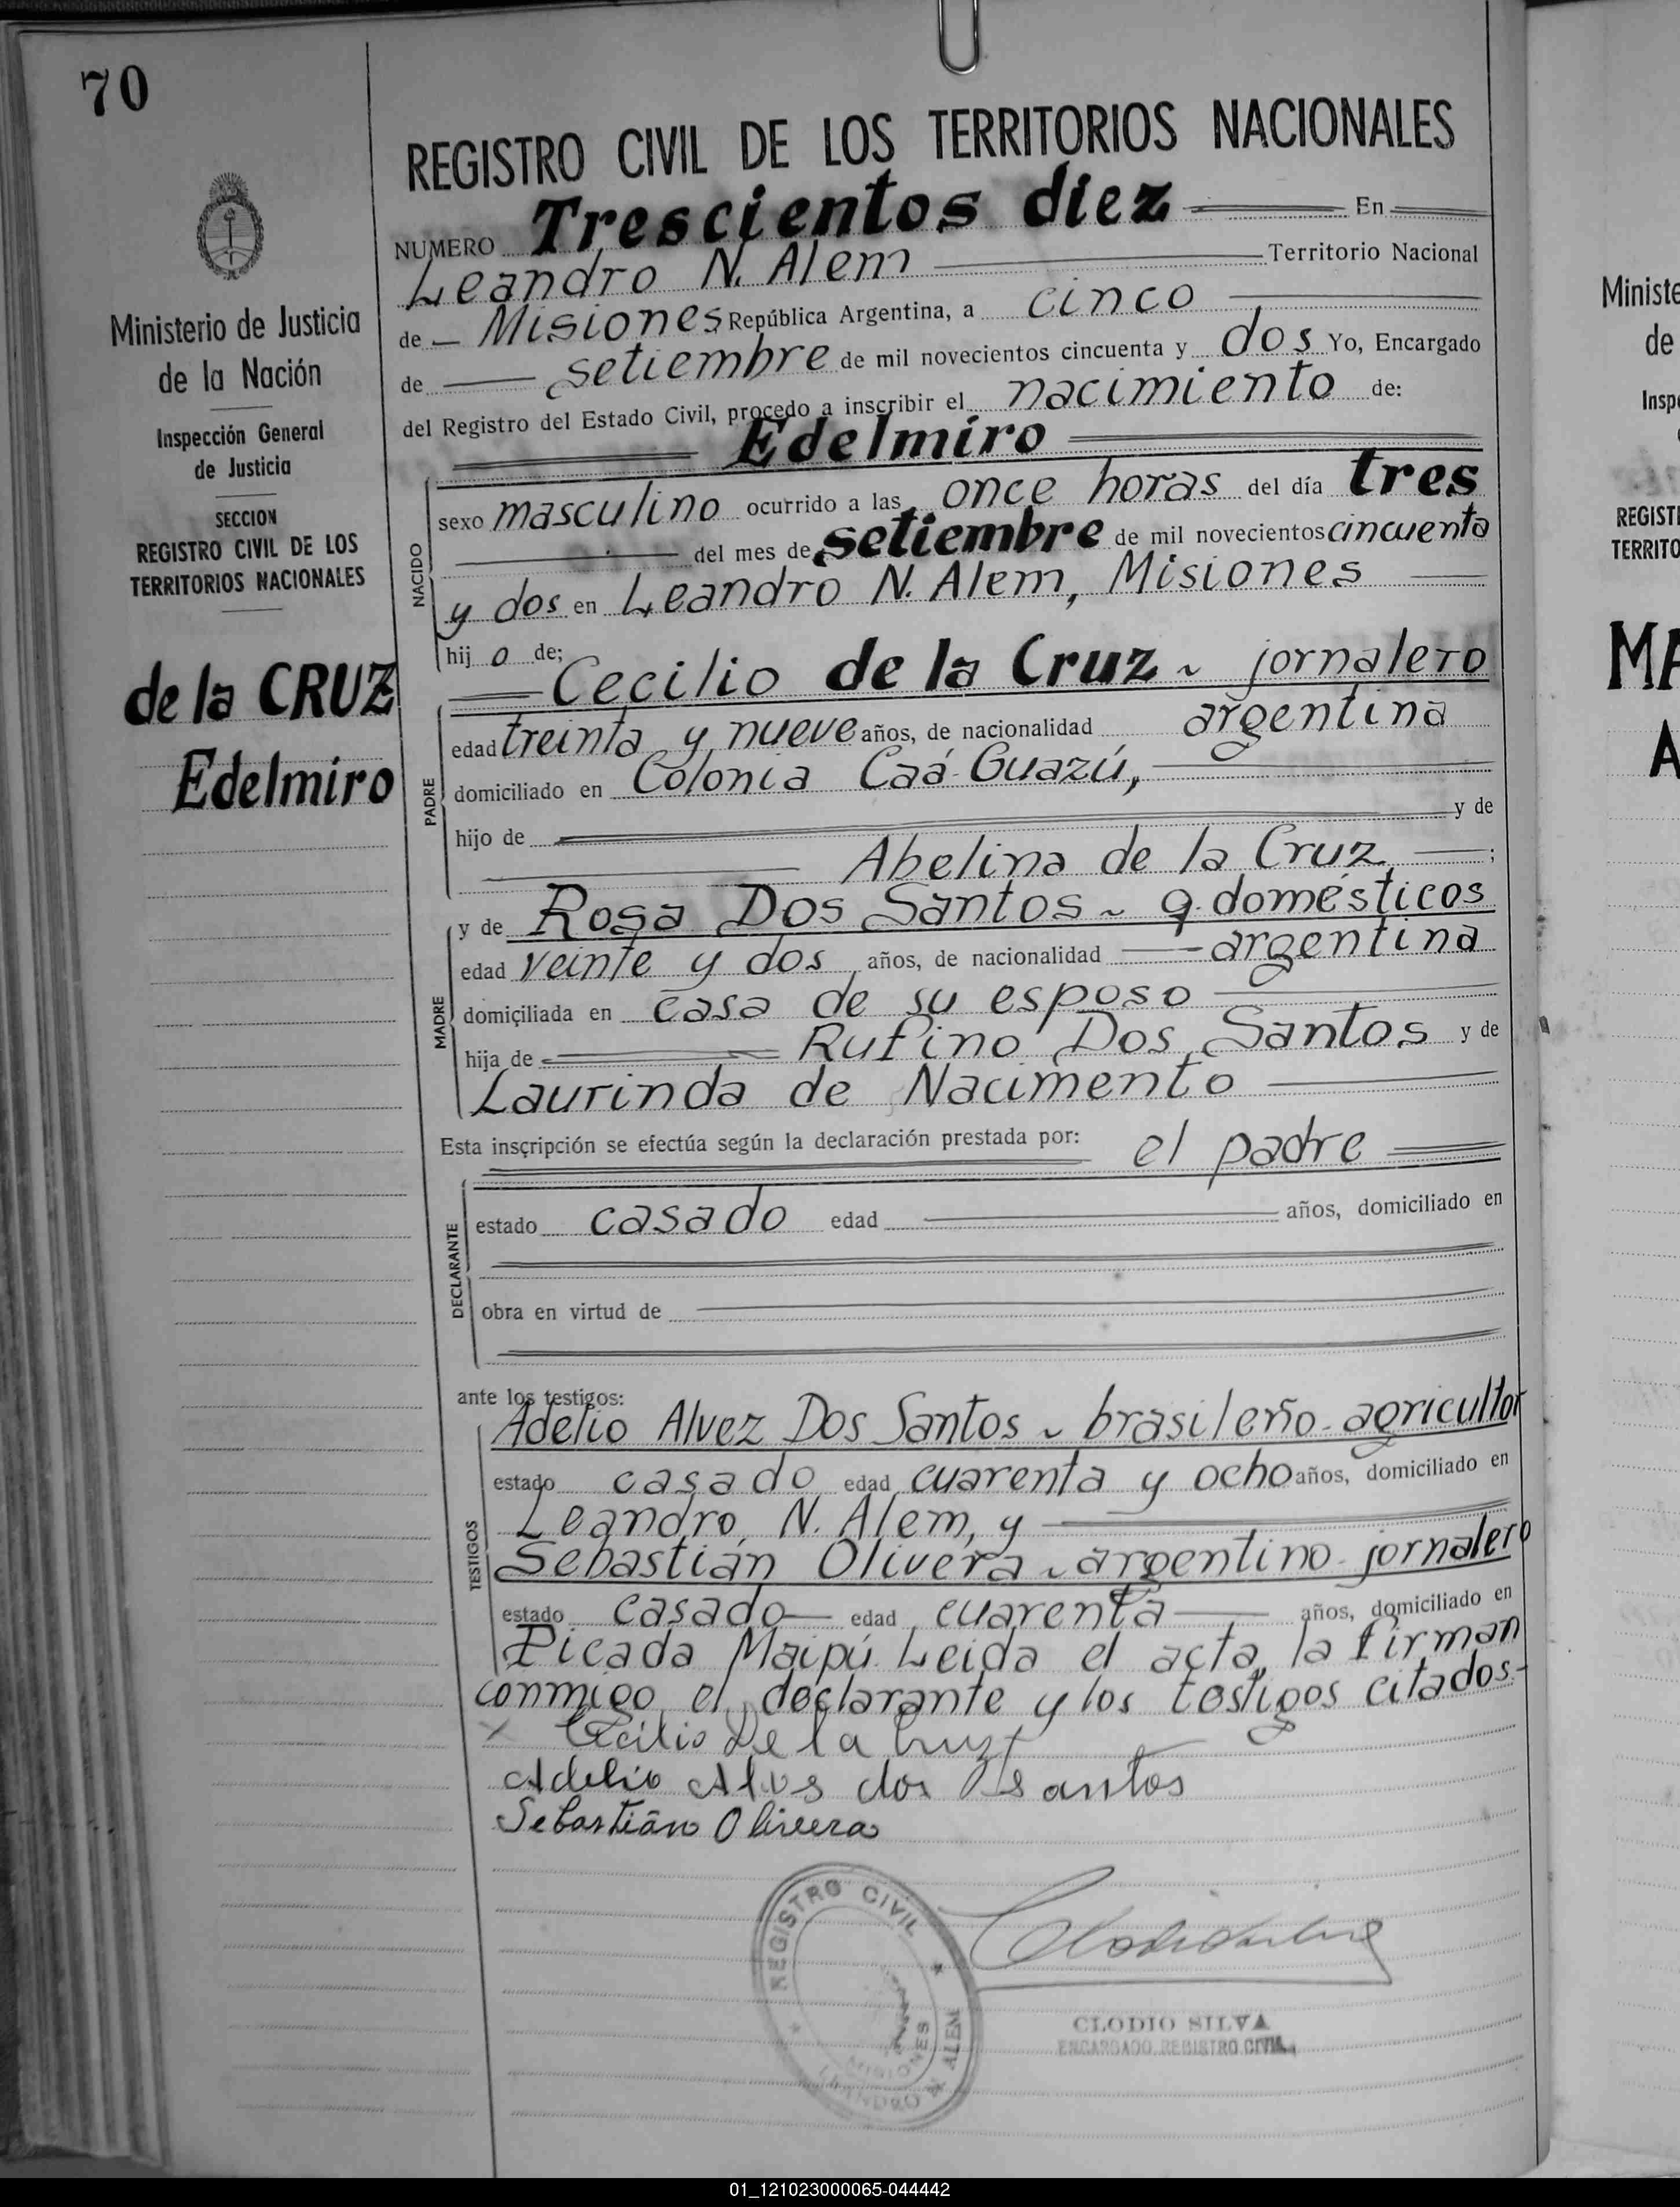 70
Ministerio de Justicia
de la Nación
Inspección General
de Justicia
SECCION
REGISTRO CIVIL DE LOS
TERRITORIOS NACIONALES
de la CRUZ
Edelmiro
REGISTRO CIVIL DE LOS TERRITORIOS NACIONALES
NUMERO Trescientos diez En
Leandro N. Alem Territorio Nacional
de Misiones República Argentina, a cinco
de setiembre de mil novecientos cincuenta y dos Yo, Encargado
del Registro del Estado Civil, procedo a inscribir el nacimiento de:
Edelmiro
NACIDO
sexo masculino ocurrido a las once horas del día tres
del mes de setiembre de mil novecientos cincuenta
y dos en Leandro N. Alem, Misiones
hij o de:
Cecilio de la Cruz ~ jornalero
PADRE
edad treinta y nueve años, de nacionalidad argentina
domiciliado en Colonia Caá-Guazú,
hijo de y de
Abelina de la Cruz ;
y de Rosa Dos Santos ~ q. domésticos
MADRE
edad veinte y dos años, de nacionalidad argentina
domiciliada en casa de su esposo
hija de Rufino Dos Santos y de
Laurinda de Nacimento
Esta inscripción se efectúa según la declaración prestada por: el padre
DECLARANTE
estado casado edad años, domiciliado en
obra en virtud de
ante los testigos:
Adelio Alvez Dos Santos ~ brasileño - agricultor
TESTIGOS
estado casado edad cuarenta y ocho años, domiciliado en
Leandro N. Alem, y
Sebastián Olivera ~ argentino - jornalero
estado casado edad cuarenta años, domiciliado en
Picada Maipú. Leida el acta, la firman
conmigo el declarante y los testigos citados.-
x Cecilio De la Cruz
Adelio Alves dos Santos
Sebastián Olivera
REGISTRO CIVIL
LEANDRO N. ALEM
MISIONES
CLODIO SILVA
ENCARGADO REGISTRO CIVIL
Ministe
de
Insp
REGIST
TERRITO
MA
A
01_121023000065-044442